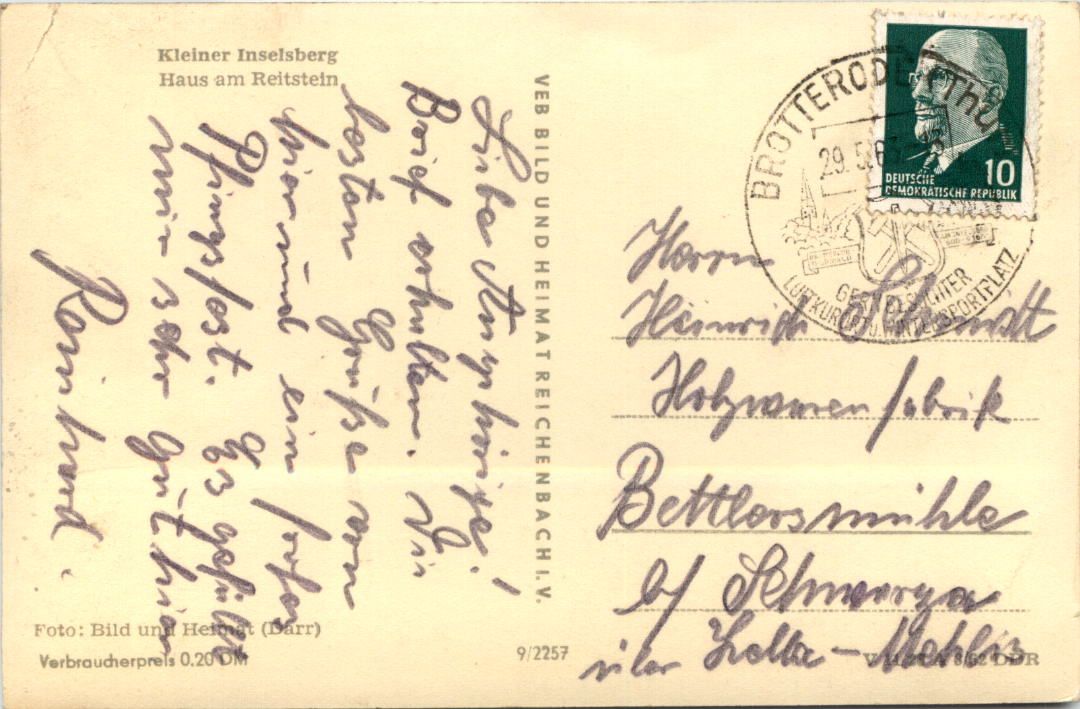 Kleiner Inselsberg
Haus am Reitstein
Liebe Angehörige!
Brief erhalten. Die
besten Grüße von
hier und ein frohes
Pfingstfest. Es gefällt
mir sehr gut hier
Reinhard.
VEB BILD UND HEIMAT REICHENBACH I. V.
Foto: Bild und Heimat (Darr)
Verbraucherpreis 0.20 DM
9/2257
BROTTERODE (Thür
29. 5. 6
GERN BESUCHTER
LUFTKURORT U. WINTERSPORTPLATZ
10
DEUTSCHE
DEMOKRATISCHE REPUBLIK
Herrn
Heinrich Schmidt
Holzwarenfabrik
Bettlersmühle
b/ Schwarza
über Zella-Mehlis
8/62 DDR